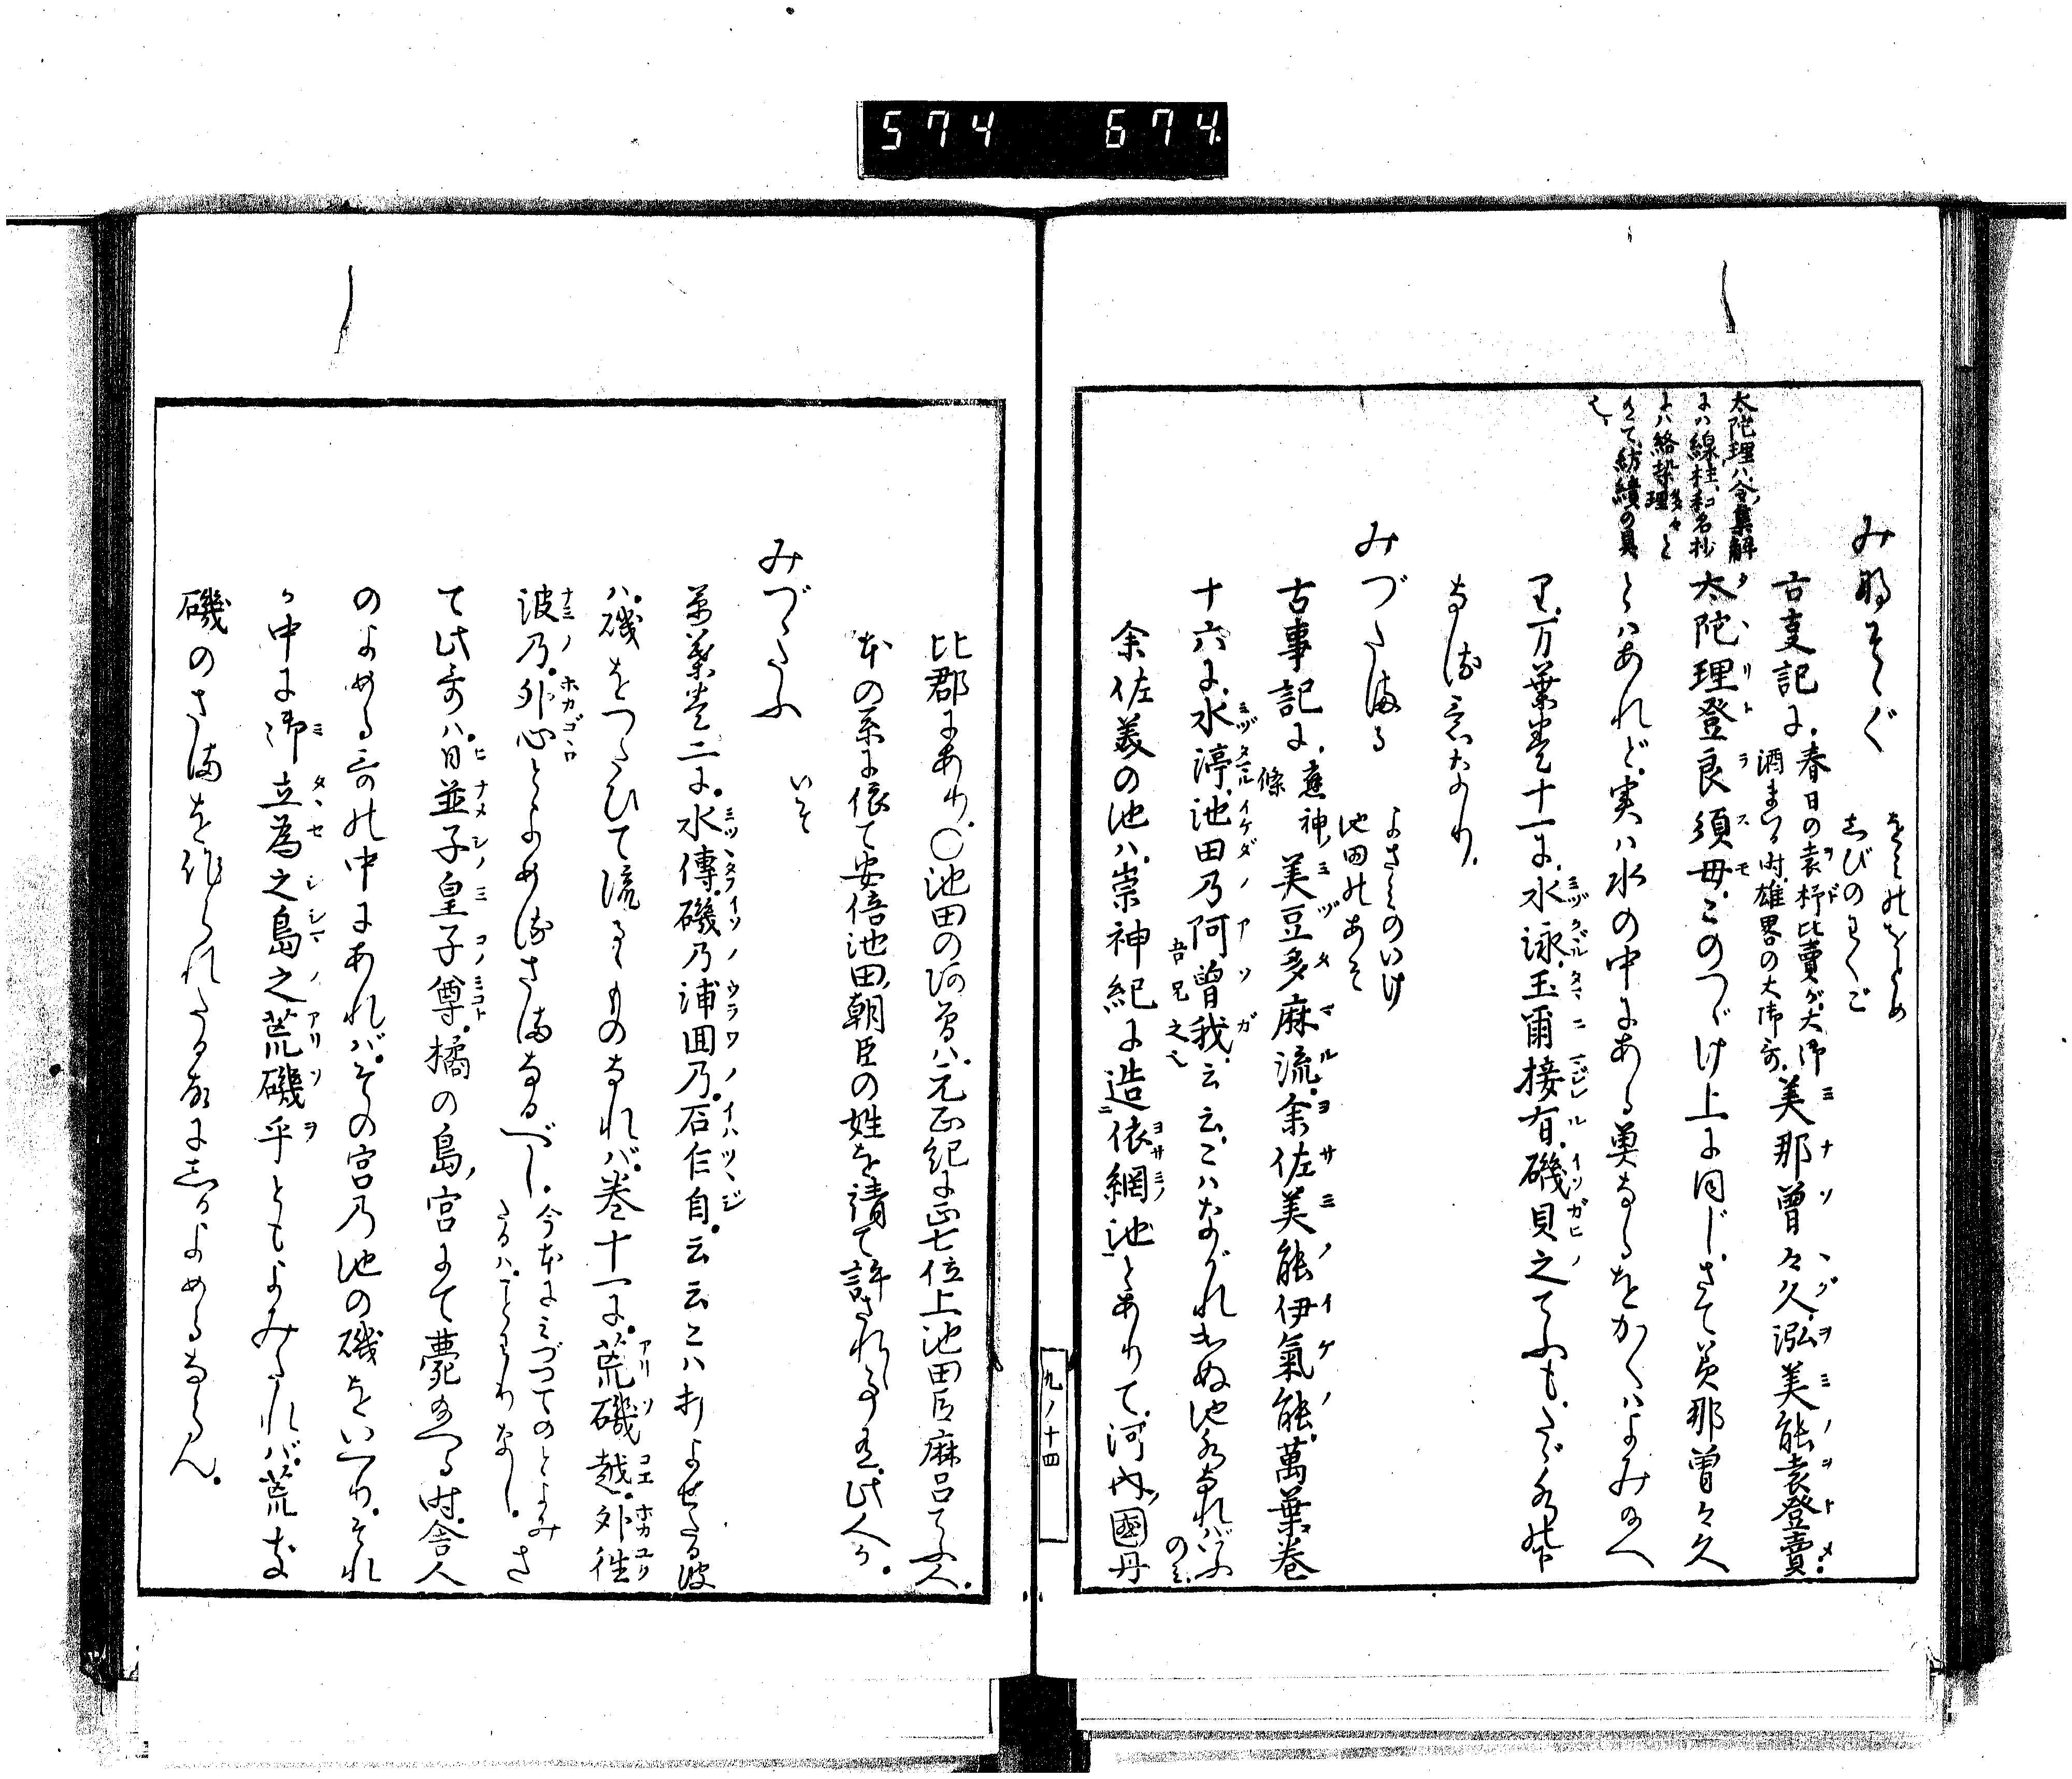 574 674.
みなそゝぐ をみのをとめ
しびのわくご
古事記に、春日の袁杼比賣ガ大御
酒まつる時、雄畧の大御哥、美那曾々久、淤美能袁登賣。
太陀理登良須母。このつゞけ上に同じ。さて美那曾々久
とはあれど、実ハ水の中にある
太陀理ハ、令集解
にハ線柱、和名抄
にハ絡垜多々理と
有て、紡績の具
也、
り。万葉巻十一に、水泳玉爾接有、磯貝之てふも、たゞ水の下
なる意なり。
みづたまる よさみのいけ
池田のあそ
古事記に、應神條 美豆多麻流。余佐美能伊氣能。萬葉巻
十六に、水渟、池田乃阿曾我、云云、こハながれぬ池水なれバいふのミ、
吾兄之也
余佐美の池ハ、崇神紀に造依網池とありて、河内國丹
九ノ十四
比郡にあり。〇池田の阿曾ハ、元正紀に正七位上池田臣麻呂てふ人、
本の系に依て安倍池田朝臣の姓を請て許されし事有、此人か。
みづつたふ いそ
萬葉巻二に、水傳、磯乃浦囬乃、石仁自、云云こハ打よせたる波
ハ、磯をつたひて流るゝものなれバ、巻十一に、荒磯越、外徃
波乃、外心とよめるさまなるべし。今本にミづつてのとよみ
たるハ、ことわりなし。さ
て此哥ハ、日並子皇子尊、橘の島宮にて薨給へる時、舎人
のよめる哥の中にあれバ、その宮乃池の磯をいへり。それ
が中に、御立為之島之荒磯乎ともよみたれバ、荒き
磯のさまを作られたる故にしかよめるならん。